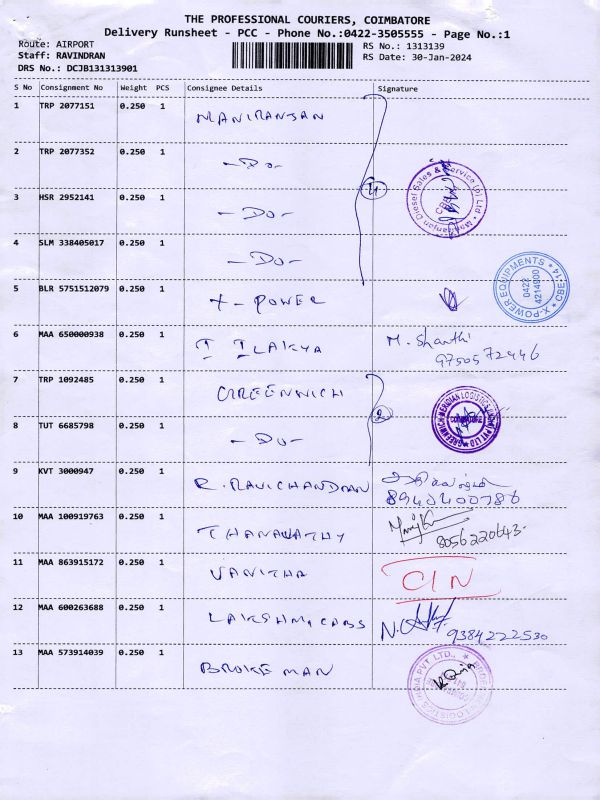 THE PROFESSIONAL COURIERS, COIMBATORE
Delivery Runsheet - PCC - Phone No.:0422-3505555 - Page No.:1
Route: AIRPORT
RS No.: 1313139
Staff: RAVINDRAN
RS Date: 30-Jan-2024
DRS No.: DCJB131313901
S No Consignment No Weight PCS Consignee Details Signature
1 TRP 2077151 0.250 1 MANIRANJAN
2 TRP 2077352 0.250 1 -Do-
Maniranjan Diesel Sales & Service (p) Ltd * CBE
3 HSR 2952141 0.250 1 -DO-
4 4
SLM 338405017 0.250 1 -DO-
X-POWER EQUIPMENTS * CBE-14 * 0422 4214900
5 BLR 5751512079 0.250 1 X-POWER
6 MAA 650000938 0.250 1 I ILAKYA M. Shanthi
9750572446
7 TRP 1092485 0.250 1 GREENWICH
2
GREENWICH MERIDIAN LOGISTICS (INDIA) PVT LTD COIMBATORE
8 TUT 6685798 0.250 1 -DO-
9 KVT 3000947 0.250 1 R. RAVICHANDRAN
8940400786
10 MAA 100919763 0.250 1 THANAWATHY
8056220643.
11 MAA 863915172 0.250 1 VANITHA CIN
12 MAA 600263688 0.250 1 LAKSHMI CABS
9384222530
13 MAA 573914039 0.250 1 BROKE MAN
LOGISTICS INDIA PVT LTD.,